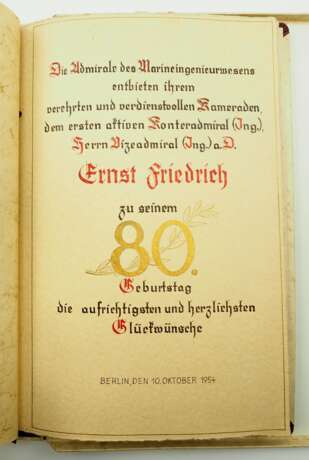 Die Admirale des Marineingenieurwesens
entbieten ihrem
verehrten und verdienstvollen Kameraden,
dem ersten aktiven Konteradmiral (Ing.),
Herrn Vizeadmiral (Ing.) a.D.
Ernst Friedrich
zu seinem
80.
Geburtstag
die aufrichtigsten und herzlichsten
Glückwünsche
BERLIN, DEN 10. OKTOBER 1954